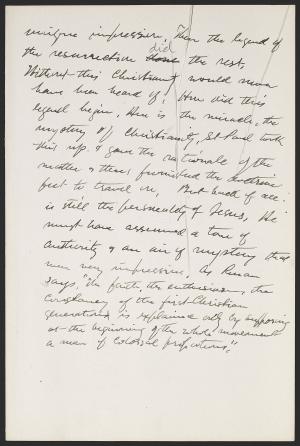 unique impression. Then the legend of
the resurrection did the rest,
Without this Christianity would never
have been heard of. How did this
legend begin. Here is the miracle, the
mystery of Christianity, St Paul took
this up & gave the rationale of the
matter & then furnished the doctrine
feet to travel on. But back of all
is still the personality of Jesus, He
must have assumed a tone of
authority & an air of mystery that
were very impressive, As Renan
says, "the faith, the enthusiasm, the
constancy of the first Christian
generations is explained only by supposing
at the beginning of the whole movement
a man of colossal proportions."